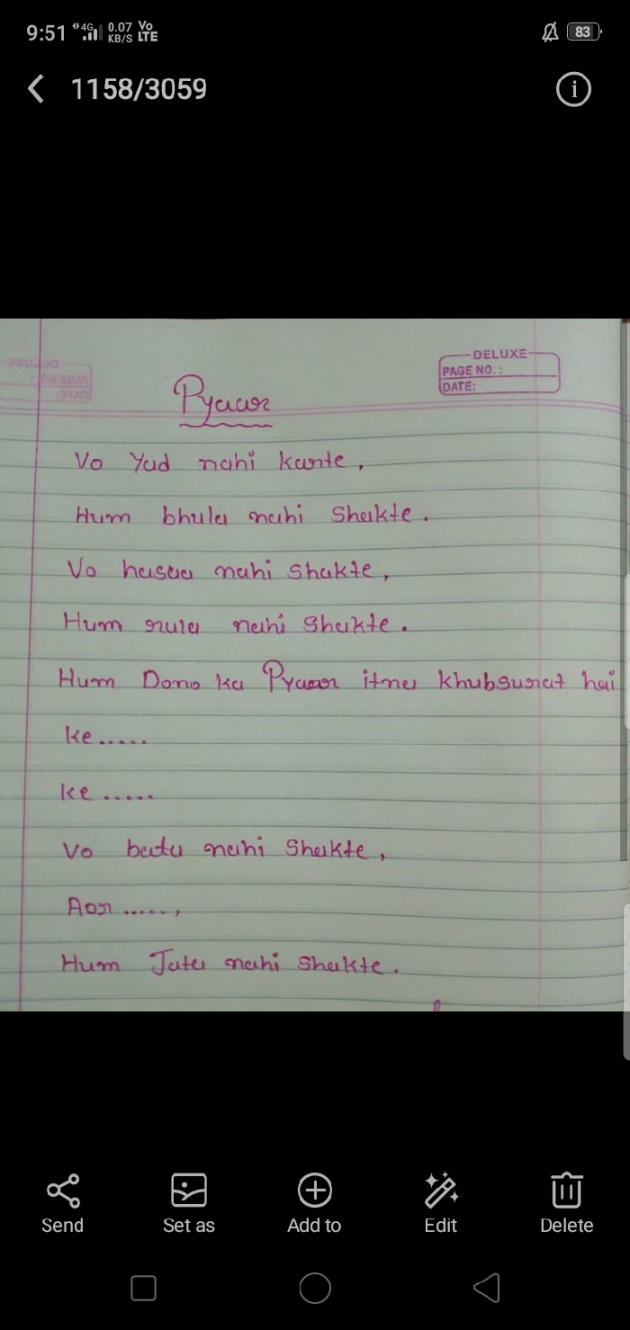 9:51 4G 0.07 KB/S Vo LTE 83
1158/3059
DELUXE
PAGE NO. :
DATE:
Pyaar
Vo Yad nahi karte,
Hum bhula nahi Shakte.
Vo hasaa nahi shakte,
Hum rula nahi Shakte.
Hum Dono ka Pyaar itna khubsurat hai
ke.....
ke.....
Vo bata nahi Shakte,
Aor .....,
Hum Jata nahi Shakte.
Send Set as Add to Edit Delete